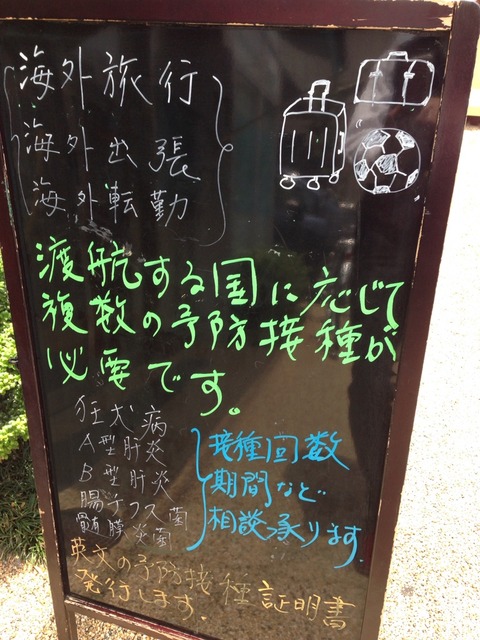 海外旅行
海外出張
海外転勤
渡航する国に応じて
複数の予防接種が
必要です。
狂犬病
A型肝炎
B型肝炎
腸チフス
髄膜炎菌
接種回数
期間など
相談承ります.
英文の予防接種証明書
発行します.